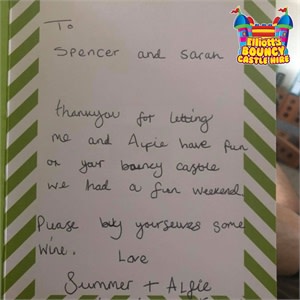 To
Spencer and Sarah
thankyou for letting
me and Alfie have fun
on your bouncy castle
we had a fun weekend
Please buy yourselves some
wine.
Love
Summer + Alfie
Elliott's
BOUNCY
CASTLE HIRE